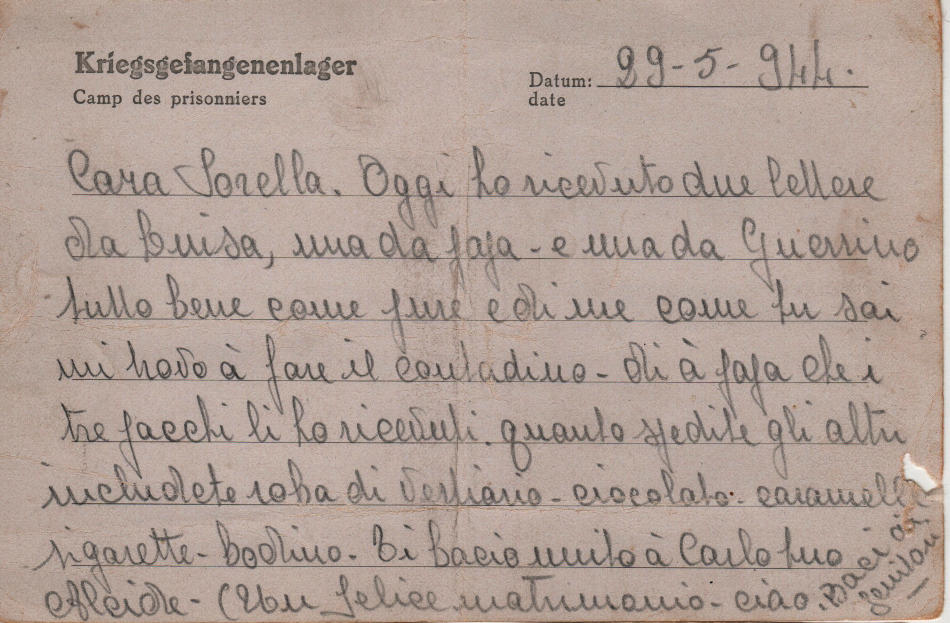 Kriegsgefangenenlager
Camp des prisonniers
Datum: 29-5-944.
date
Cara Sorella. Oggi ho ricevuto due lettere
da Luisa, una da papa - e una da Guerrino
tutto bene come pure e di me come tu sai
mi trovo à fare il contadino - di à papa che i
tre pacchi li ho ricevuti. quanto spedite gli altri
includete roba di vestiario - ciocolato - caramelle
sigarette - bodino. Ti bacio unito à Carlo tuo
Alcide - (Un felice matrimonio - ciao.
Baci ai
genitori